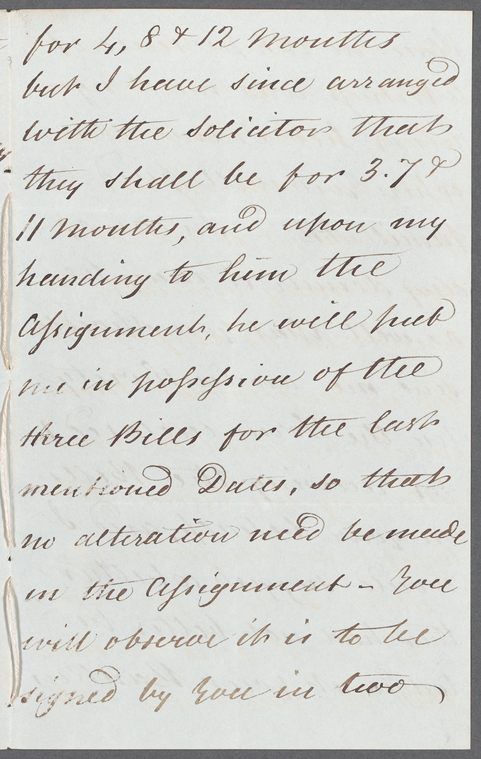 for 4, 8 & 12 Months
but I have since arranged
with the Solicitor that
they shall be for 3. 7 &
11 Months, and upon my
handing to him the
Assignment, he will put
me in possession of the
three Bills for the last
mentioned Dates, so that
no alteration need be made
in the Assignment – You
will observe it is to be
signed by You in two